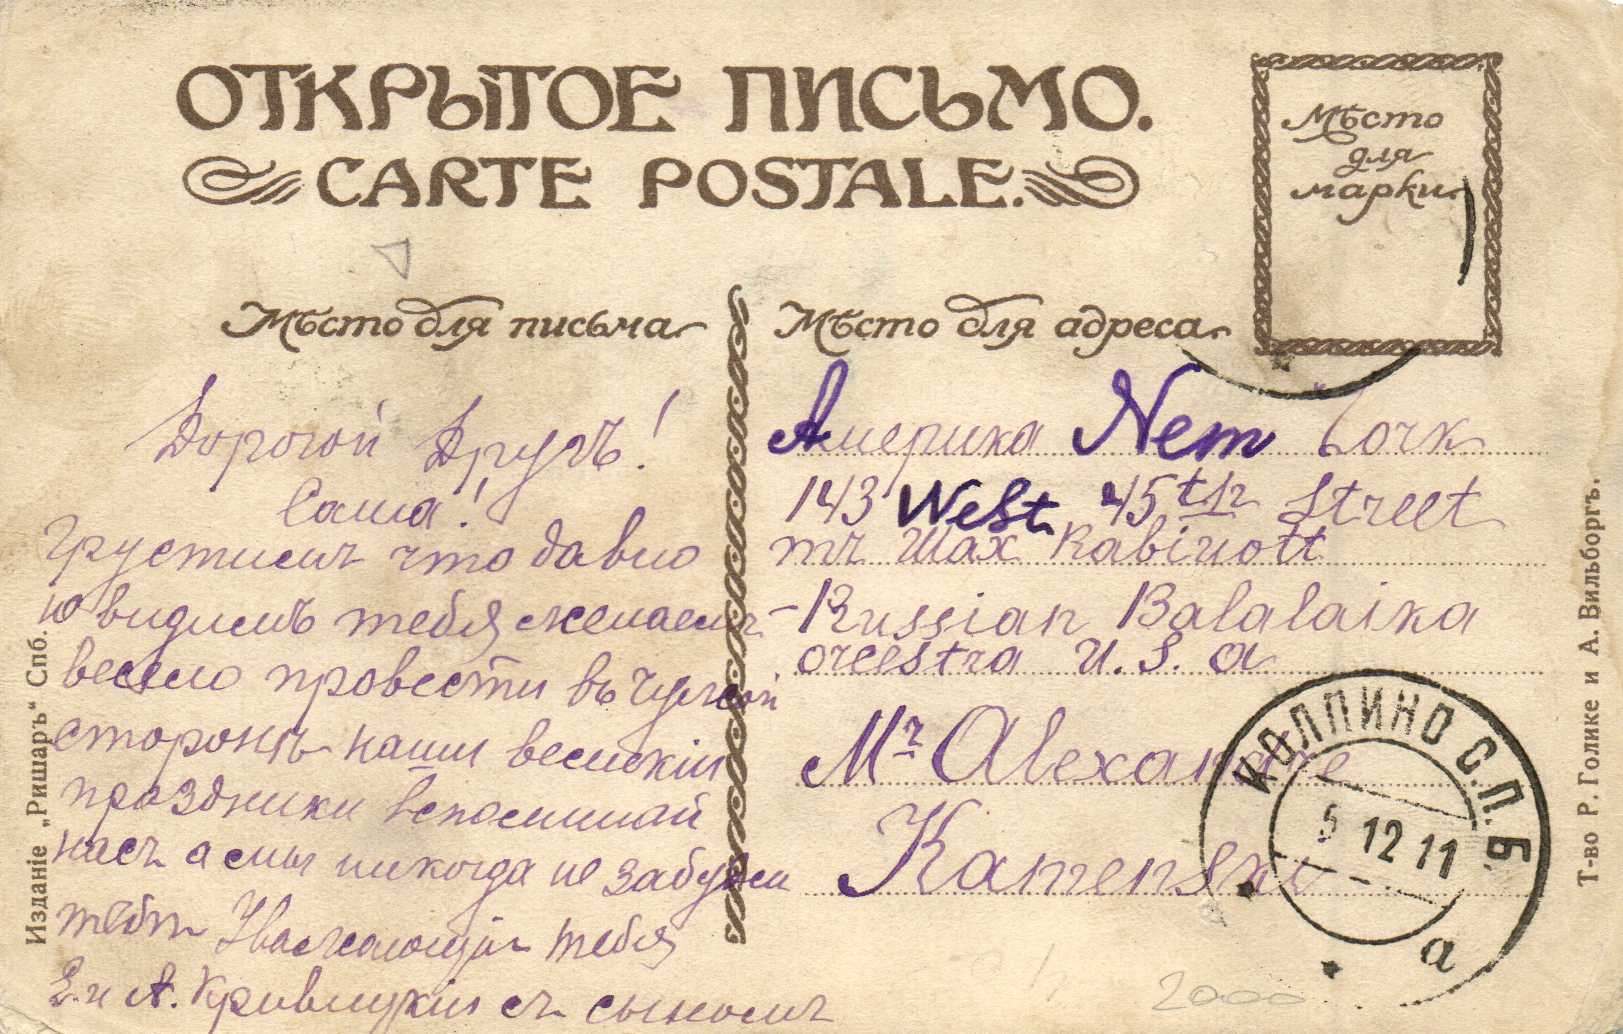 ОТКРЫТОЕ ПИСЬМО.
CARTE POSTALE.
Мѣсто
для
марки.
Мѣсто для письма
Мѣсто для адреса
Дорогой Другъ!
Саша!
Грустимъ что давно
не видимъ тебя желаемъ
весело провести въ чужой
сторонѣ наши великіи
праздники вспоминай
насъ а мы никогда не забудем
тебя Уважающіи тебя
и А. съ сыномъ
Америка New Iорк
143 West 45th Street
mr Шах Rabinott
Russian Balalaika
orcestra U. S. a
Mr Alexandre
Kamenski
КОЛПИНО С.П.Б.
5 12 11
а
Изданіе „Ришаръ“ Спб.
Т-во Р. Голике и А. Вильборгъ.
2000